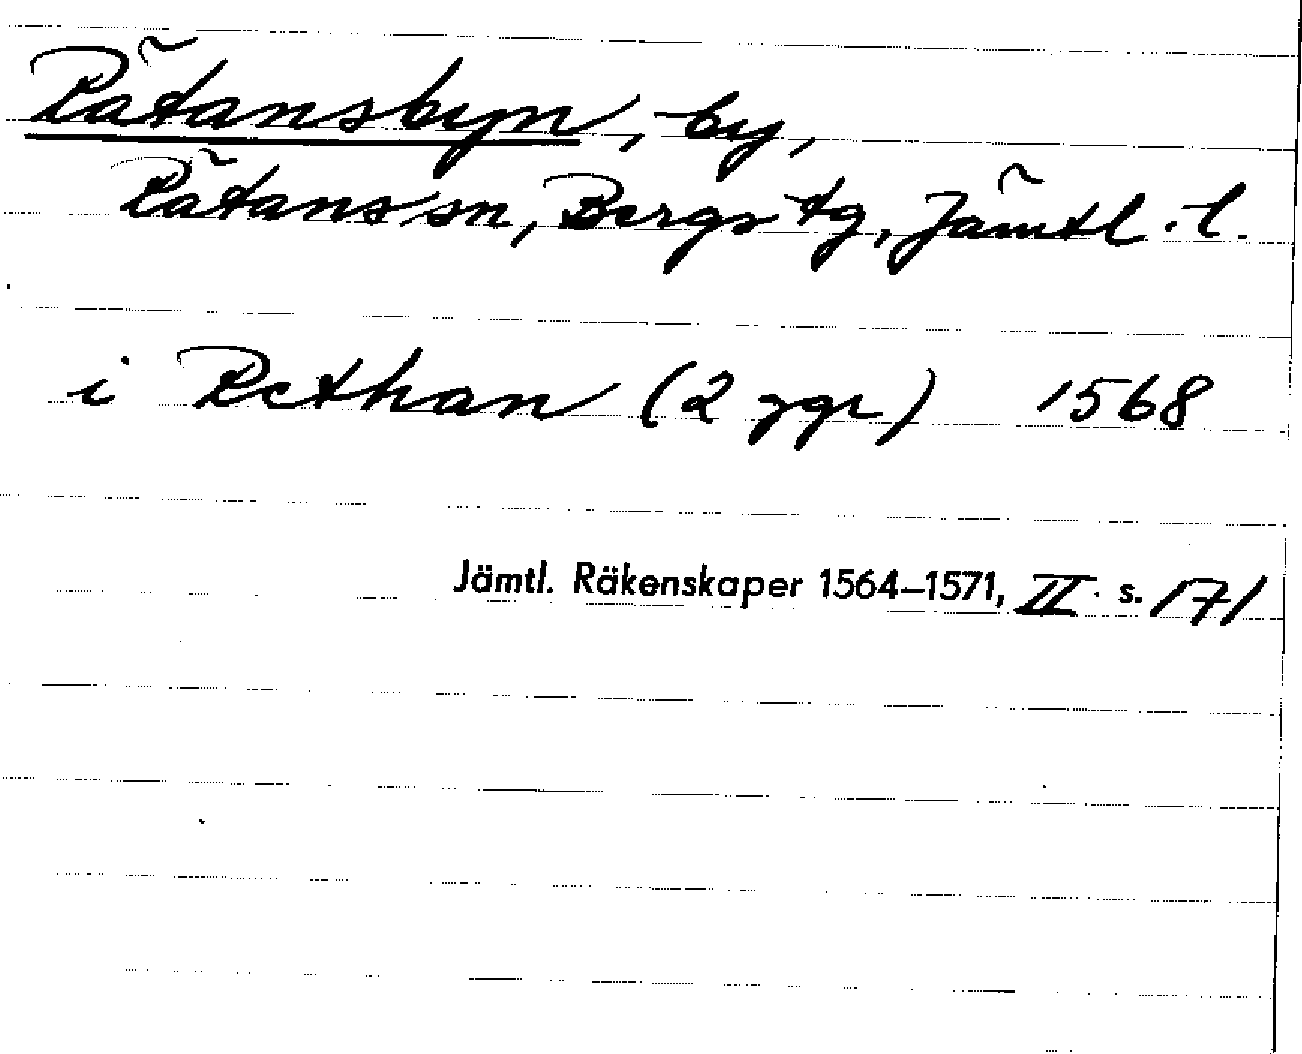 Rätansbyn, by,
Rätans sn, Bergs tg, Jämtl. l.
i Rethan (2 ggr) 1568
Jämtl. Räkenskaper 1564–1571, II s. 171